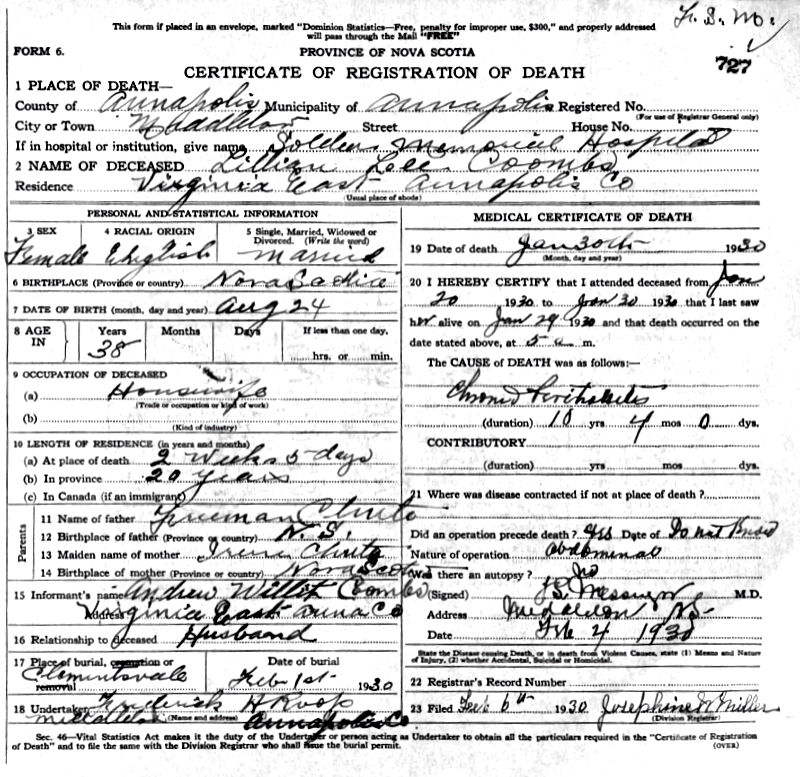 This form if placed in an envelope, marked "Dominion Statistics—Free, penalty for improper use, $300," and properly addressed
will pass through the Mail "FREE"
FORM 6.
PROVINCE OF NOVA SCOTIA
727
CERTIFICATE OF REGISTRATION OF DEATH
1 PLACE OF DEATH—
County of Annapolis Municipality of Annapolis Registered No.
(For use of Registrar General only)
City or Town Middleton Street House No.
If in hospital or institution, give name Soldiers Memorial Hospital
2 NAME OF DECEASED Lillian Lee Coombs
Residence Virginia East Annapolis Co
(Usual place of abode)
PERSONAL AND STATISTICAL INFORMATION
3 SEX 4 RACIAL ORIGIN 5 Single, Married, Widowed or
Divorced. (Write the word)
Female English Married
6 BIRTHPLACE (Province or country) Nova Scotia
7 DATE OF BIRTH (month, day and year) Aug 24
8 AGE IN Years Months Days If less than one day,
38 hrs. or min.
9 OCCUPATION OF DECEASED
(a) Housewife
(Trade or occupation or kind of work)
(b)
(Kind of industry)
10 LENGTH OF RESIDENCE (in years and months)
(a) At place of death 2 Weeks 5 days
(b) In province 20 years
(c) In Canada (if an immigrant)
Parents
11 Name of father Freeman Chute
12 Birthplace of father (Province or country) N. S.
13 Maiden name of mother Irene Chute
14 Birthplace of mother (Province or country) Nova Scotia
15 Informant's name Andrew Coombs
Address Virginia East Anna Co
16 Relationship to deceased Husband
17 Place of burial, cremation or removal Date of burial
Clementsvale Feb 1st 1930
18 Undertaker Frederick H Roop
(Name and address)
Middleton Annapolis Co
MEDICAL CERTIFICATE OF DEATH
19 Date of death Jan 30th 1930
(Month, day and year)
20 I HEREBY CERTIFY that I attended deceased from Jan
20 1930 to Jan 30 1930 that I last saw
her alive on Jan 29 1930 and that death occurred on the
date stated above, at 5 a m.
The CAUSE of DEATH was as follows:—
Chronic Peritonitis
(duration) 10 yrs 4 mos 0 dys.
CONTRIBUTORY
(duration) yrs mos dys.
21 Where was disease contracted if not at place of death?
Did an operation precede death? Yes Date of Do not know
Nature of operation abdominal
Was there an autopsy? No
(Signed) Messenger M.D.
Address Middleton NS
Date Feb 4 1930
State the Disease causing Death, or in death from Violent Causes, state (1) Means and Nature
of Injury, (2) whether Accidental, Suicidal or Homicidal.
22 Registrar's Record Number
23 Filed Feb 6th 1930 Josephine W Miller
(Division Registrar)
Sec. 46—Vital Statistics Act makes it the duty of the Undertaker or person acting as Undertaker to obtain all the particulars required in the "Certificate of Registration
of Death" and to file the same with the Division Registrar who shall issue the burial permit.
(OVER)